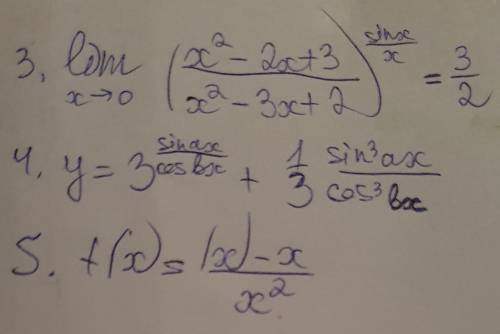 3. lim x→0 (x² - 2x + 3 / x² - 3x + 2)^(sinx / x) = 3/2
4. y = 3^(sin ax / cos bx) + 1/3 sin³ax / cos³bx
5. f(x) = |x| - x / x²